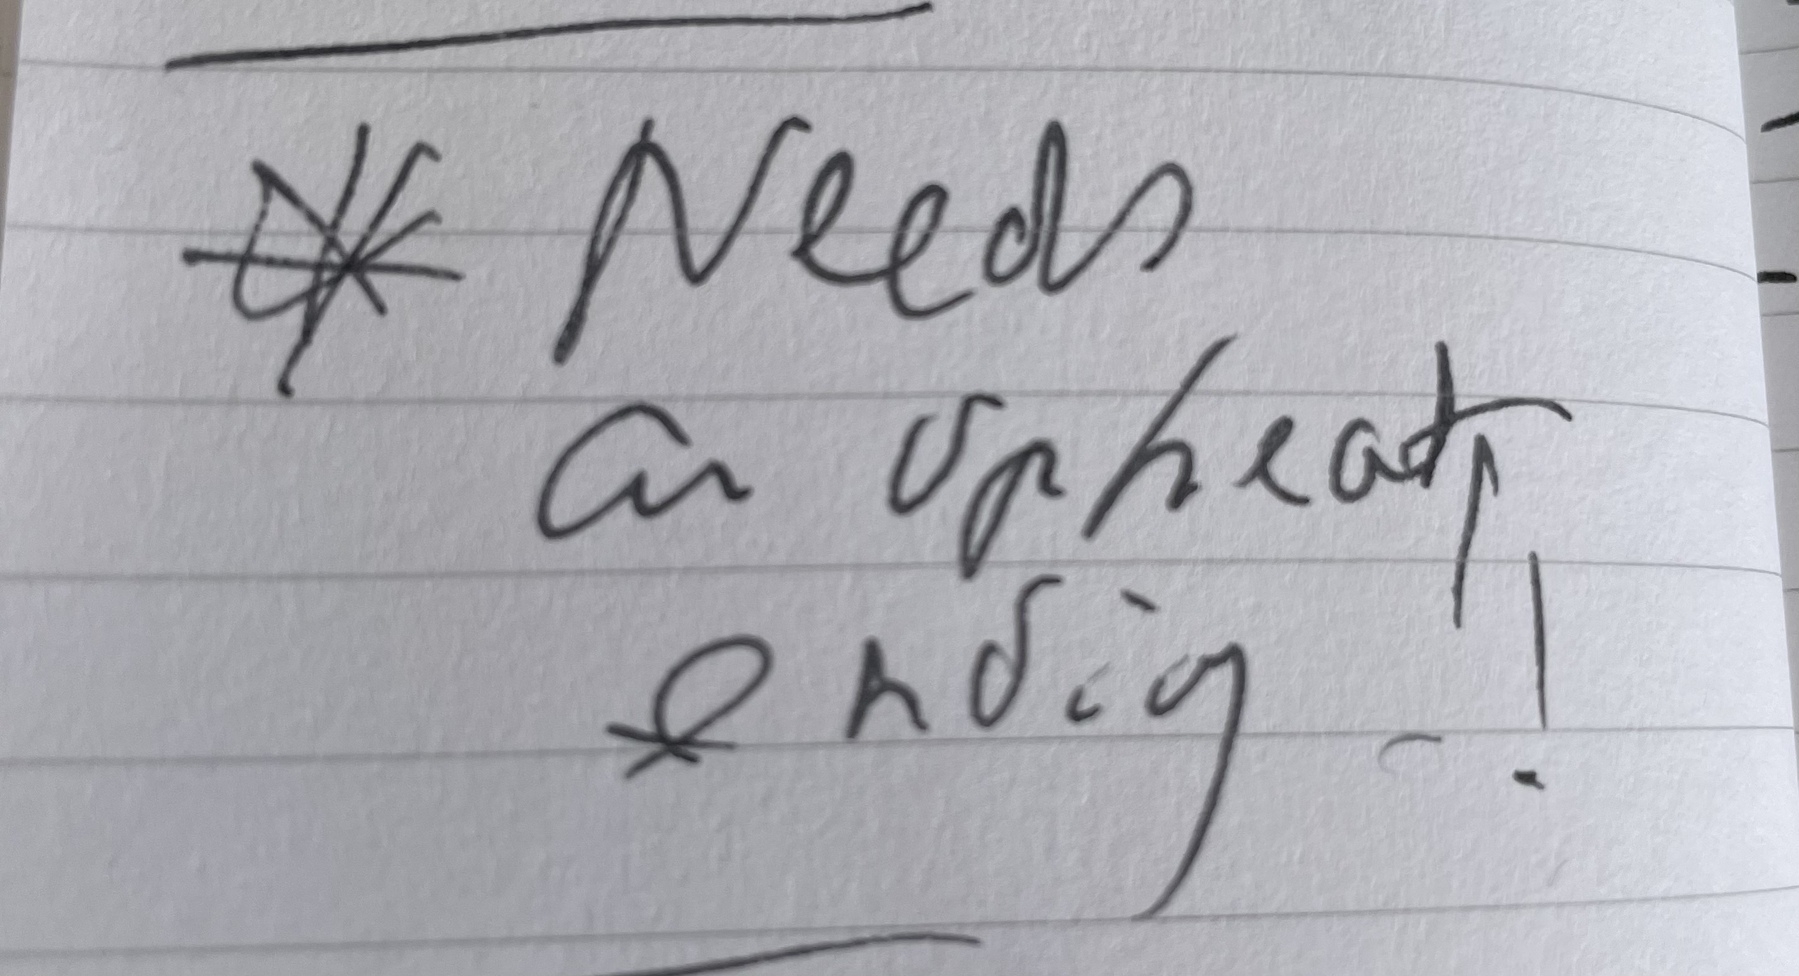 * Needs
an upbeat
ending!